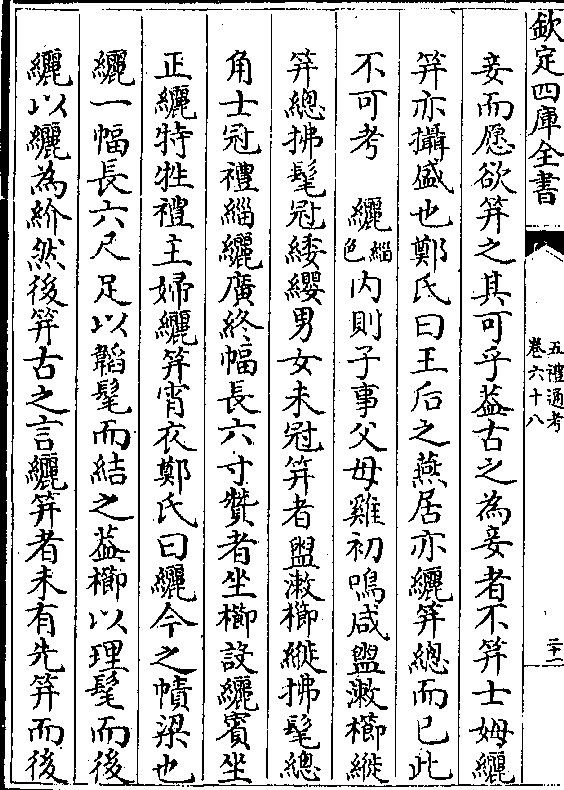 欽定四庫全書
五禮通考
卷六十八
二十一
妾而愿欲笄之其可乎葢古之為妾者不笄士姆纚
笄亦攝盛也鄭氏曰王后之燕居亦纚笄總而已此
不可考　纚緇色內則子事父母雞初鳴咸盥漱櫛縰
笄總拂髦冠緌纓男女未冠笄者盥漱櫛縰拂髦總
角士冠禮緇纚廣終幅長六寸贊者坐櫛設纚賓坐
正纚特牲禮主婦纚笄宵衣鄭氏曰纚今之幘梁也
纚一幅長六尺足以韜髦而結之葢櫛以理髦而後
纚以纚為紒然後笄古之言纚笄者未有先笄而後